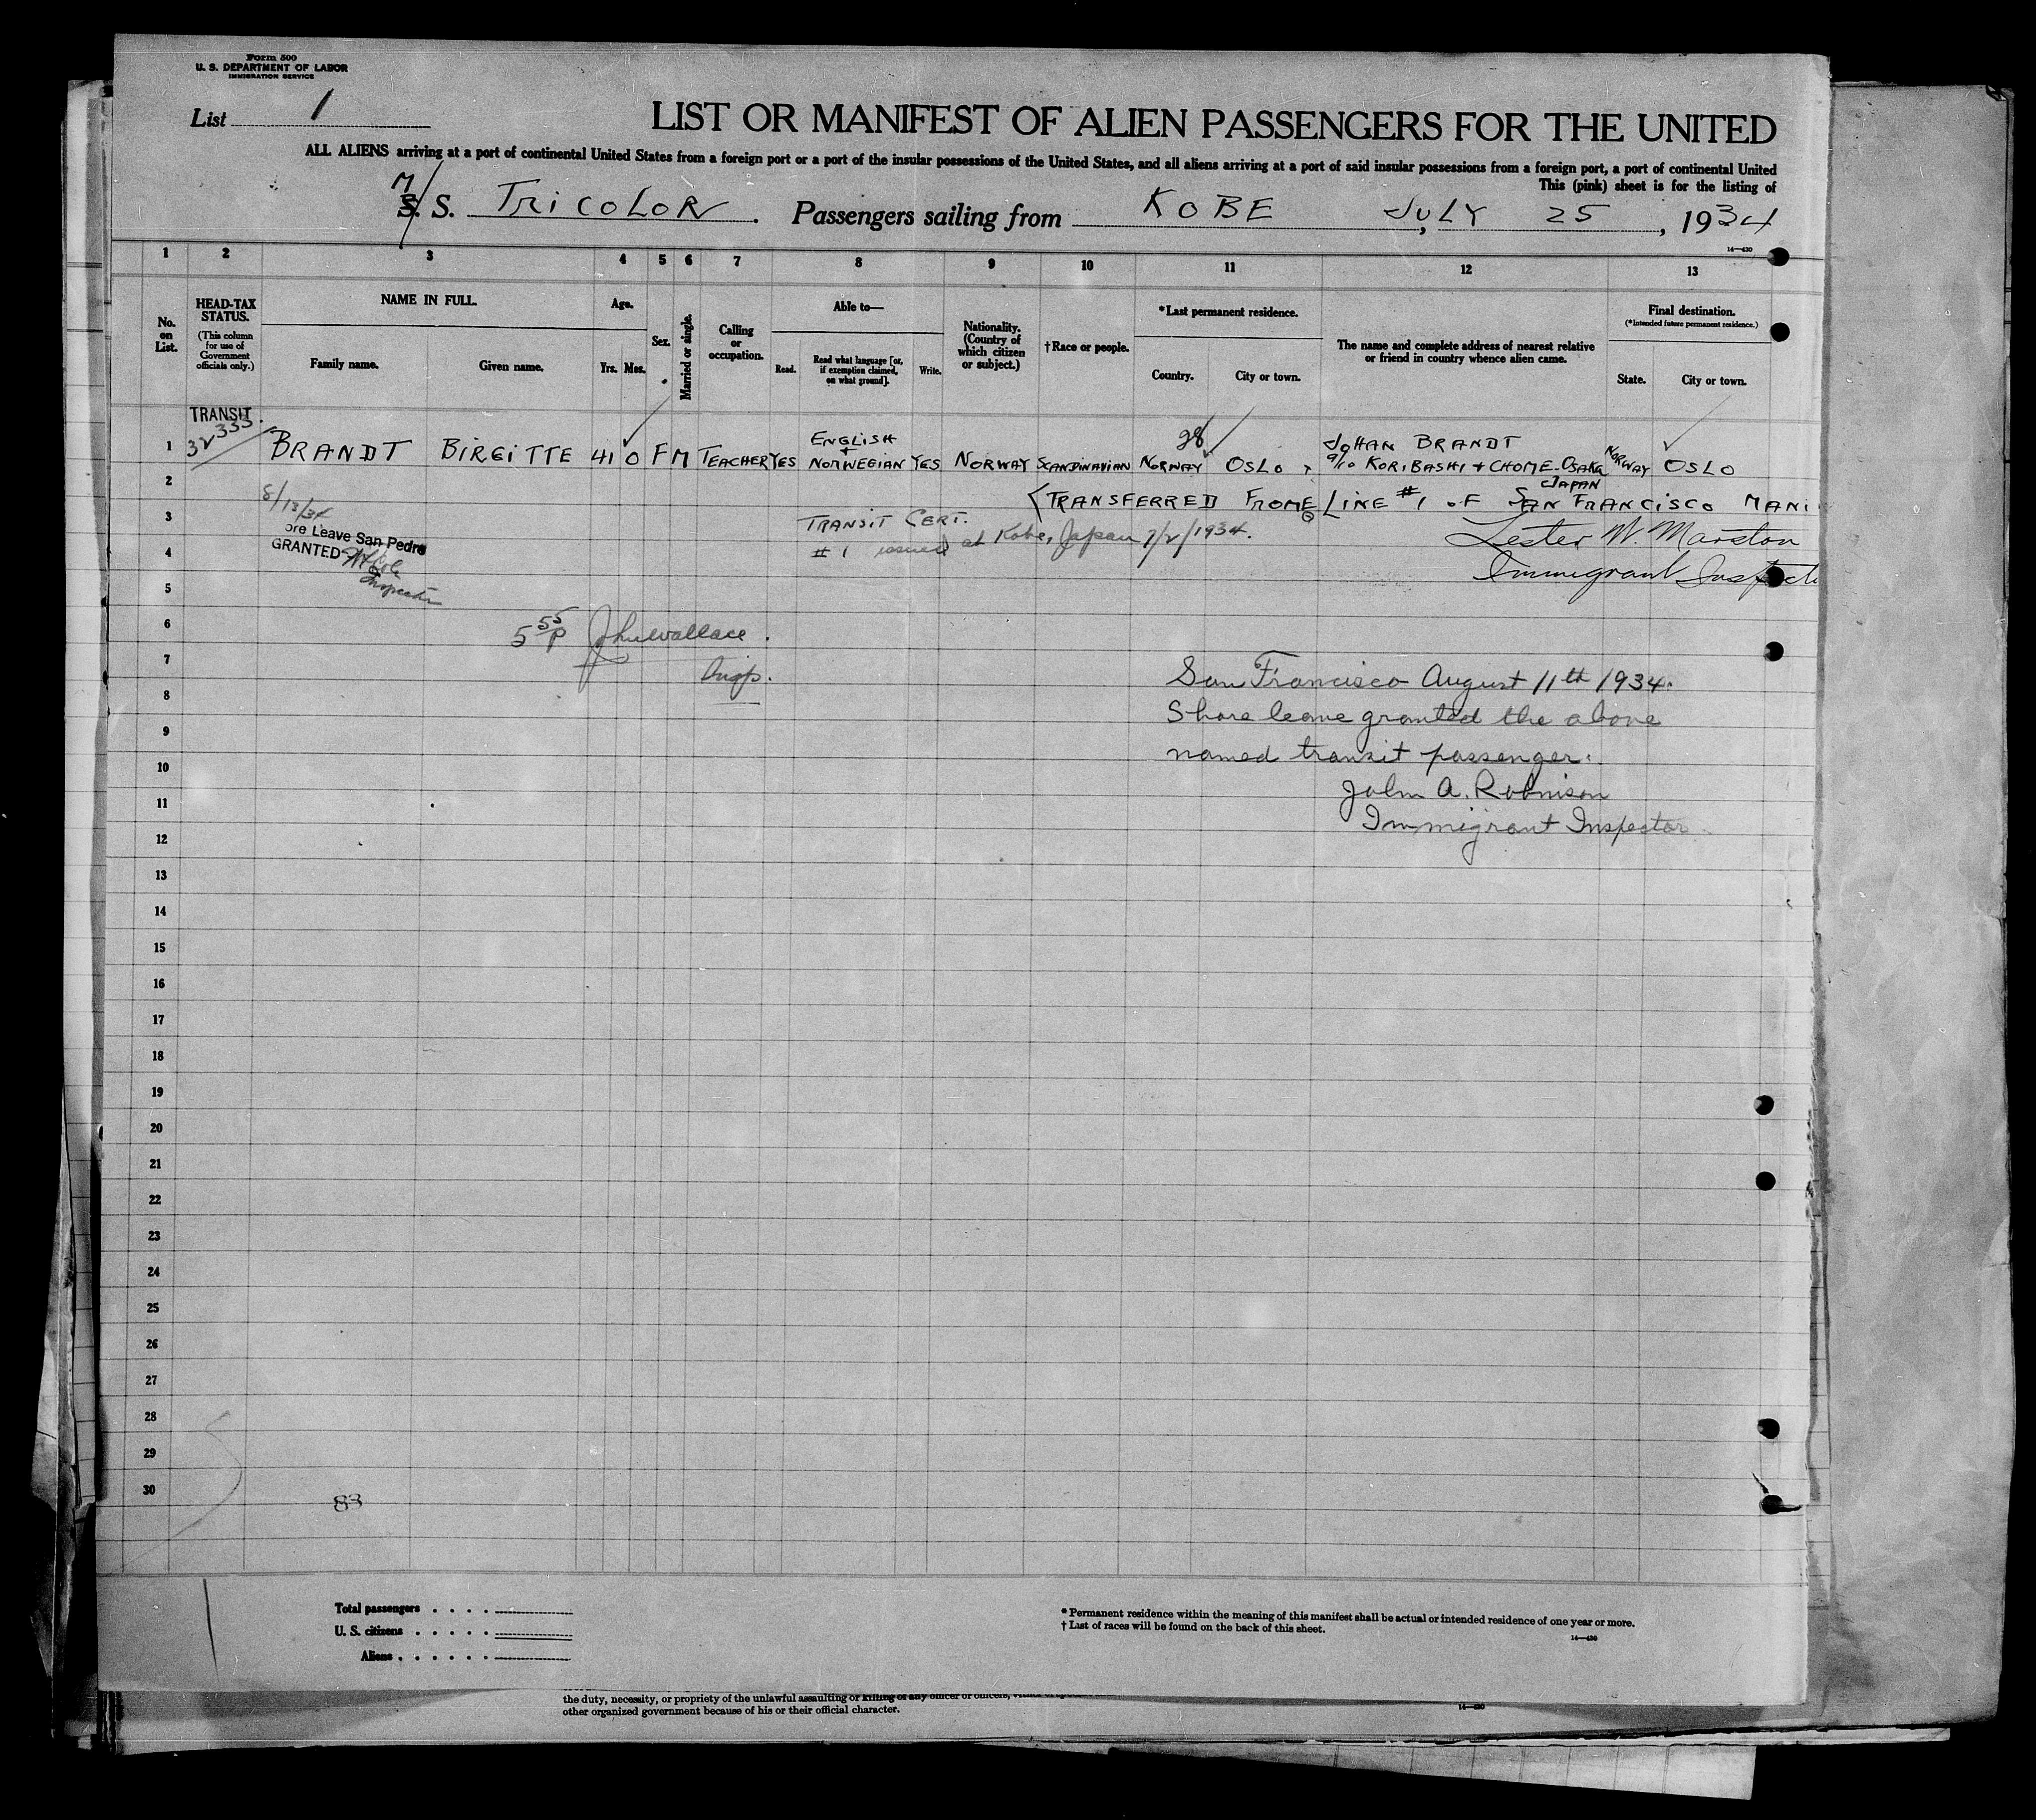 Form 500
U. S. DEPARTMENT OF LABOR
IMMIGRATION SERVICE
List 1
LIST OR MANIFEST OF ALIEN PASSENGERS FOR THE UNITED
ALL ALIENS arriving at a port of continental United States from a foreign port or a port of the insular possessions of the United States, and all aliens arriving at a port of said insular possessions from a foreign port, a port of continental United
This (pink) sheet is for the listing of
M/S. S. TRICOLOR. Passengers sailing from KOBE, JULY 25, 1934
14—430
1 2 3 4 5 6 7 8 9 10 11 12 13
No. on List.
HEAD-TAX STATUS.
(This column for use of Government officials only.)
NAME IN FULL.
Family name. Given name.
Age.
Yrs. Mos.
Sex.
Married or single.
Calling or occupation.
Able to—
Read. Read what language [or, if exemption claimed, on what ground]. Write.
Nationality. (Country of which citizen or subject.)
†Race or people.
*Last permanent residence.
Country. City or town.
The name and complete address of nearest relative or friend in country whence alien came.
Final destination.
(*Intended future permanent residence.)
State. City or town.
TRANSIT
32333
1 BRANDT BIRGITTE 41 0 F M TEACHER YES ENGLISH + NORWEGIAN YES NORWAY SCANDINAVIAN NORWAY OSLO JOHAN BRANDT
KORIBASHI 4 CHOME-OSAKA JAPAN NORWAY OSLO
2 (TRANSFERRED FROME LINE #1 OF SAN FRANCISCO MANI
8/13/34
3 TRANSIT CERT.
# 1 issued at Kobe, Japan 7/2/1934.
Lester W. Marston
Immigrant Inspect
ore Leave San Pedro
GRANTED
Inspector
4
5
6
5 55 P Jhuwallace.
Insp.
7
San Francisco August 11th 1934.
8
Shore leave granted the above
9
named transit passenger.
10
John A. Robinson
11
Immigrant Inspector
12
13
14
15
16
17
18
19
20
21
22
23
24
25
26
27
28
29
30
83
Total passengers
U. S. citizens
Aliens
* Permanent residence within the meaning of this manifest shall be actual or intended residence of one year or more.
† List of races will be found on the back of this sheet.
14—430
the duty, necessity, or propriety of the unlawful assaulting or killing of any officer or officers,
other organized government because of his or their official character.
14—430